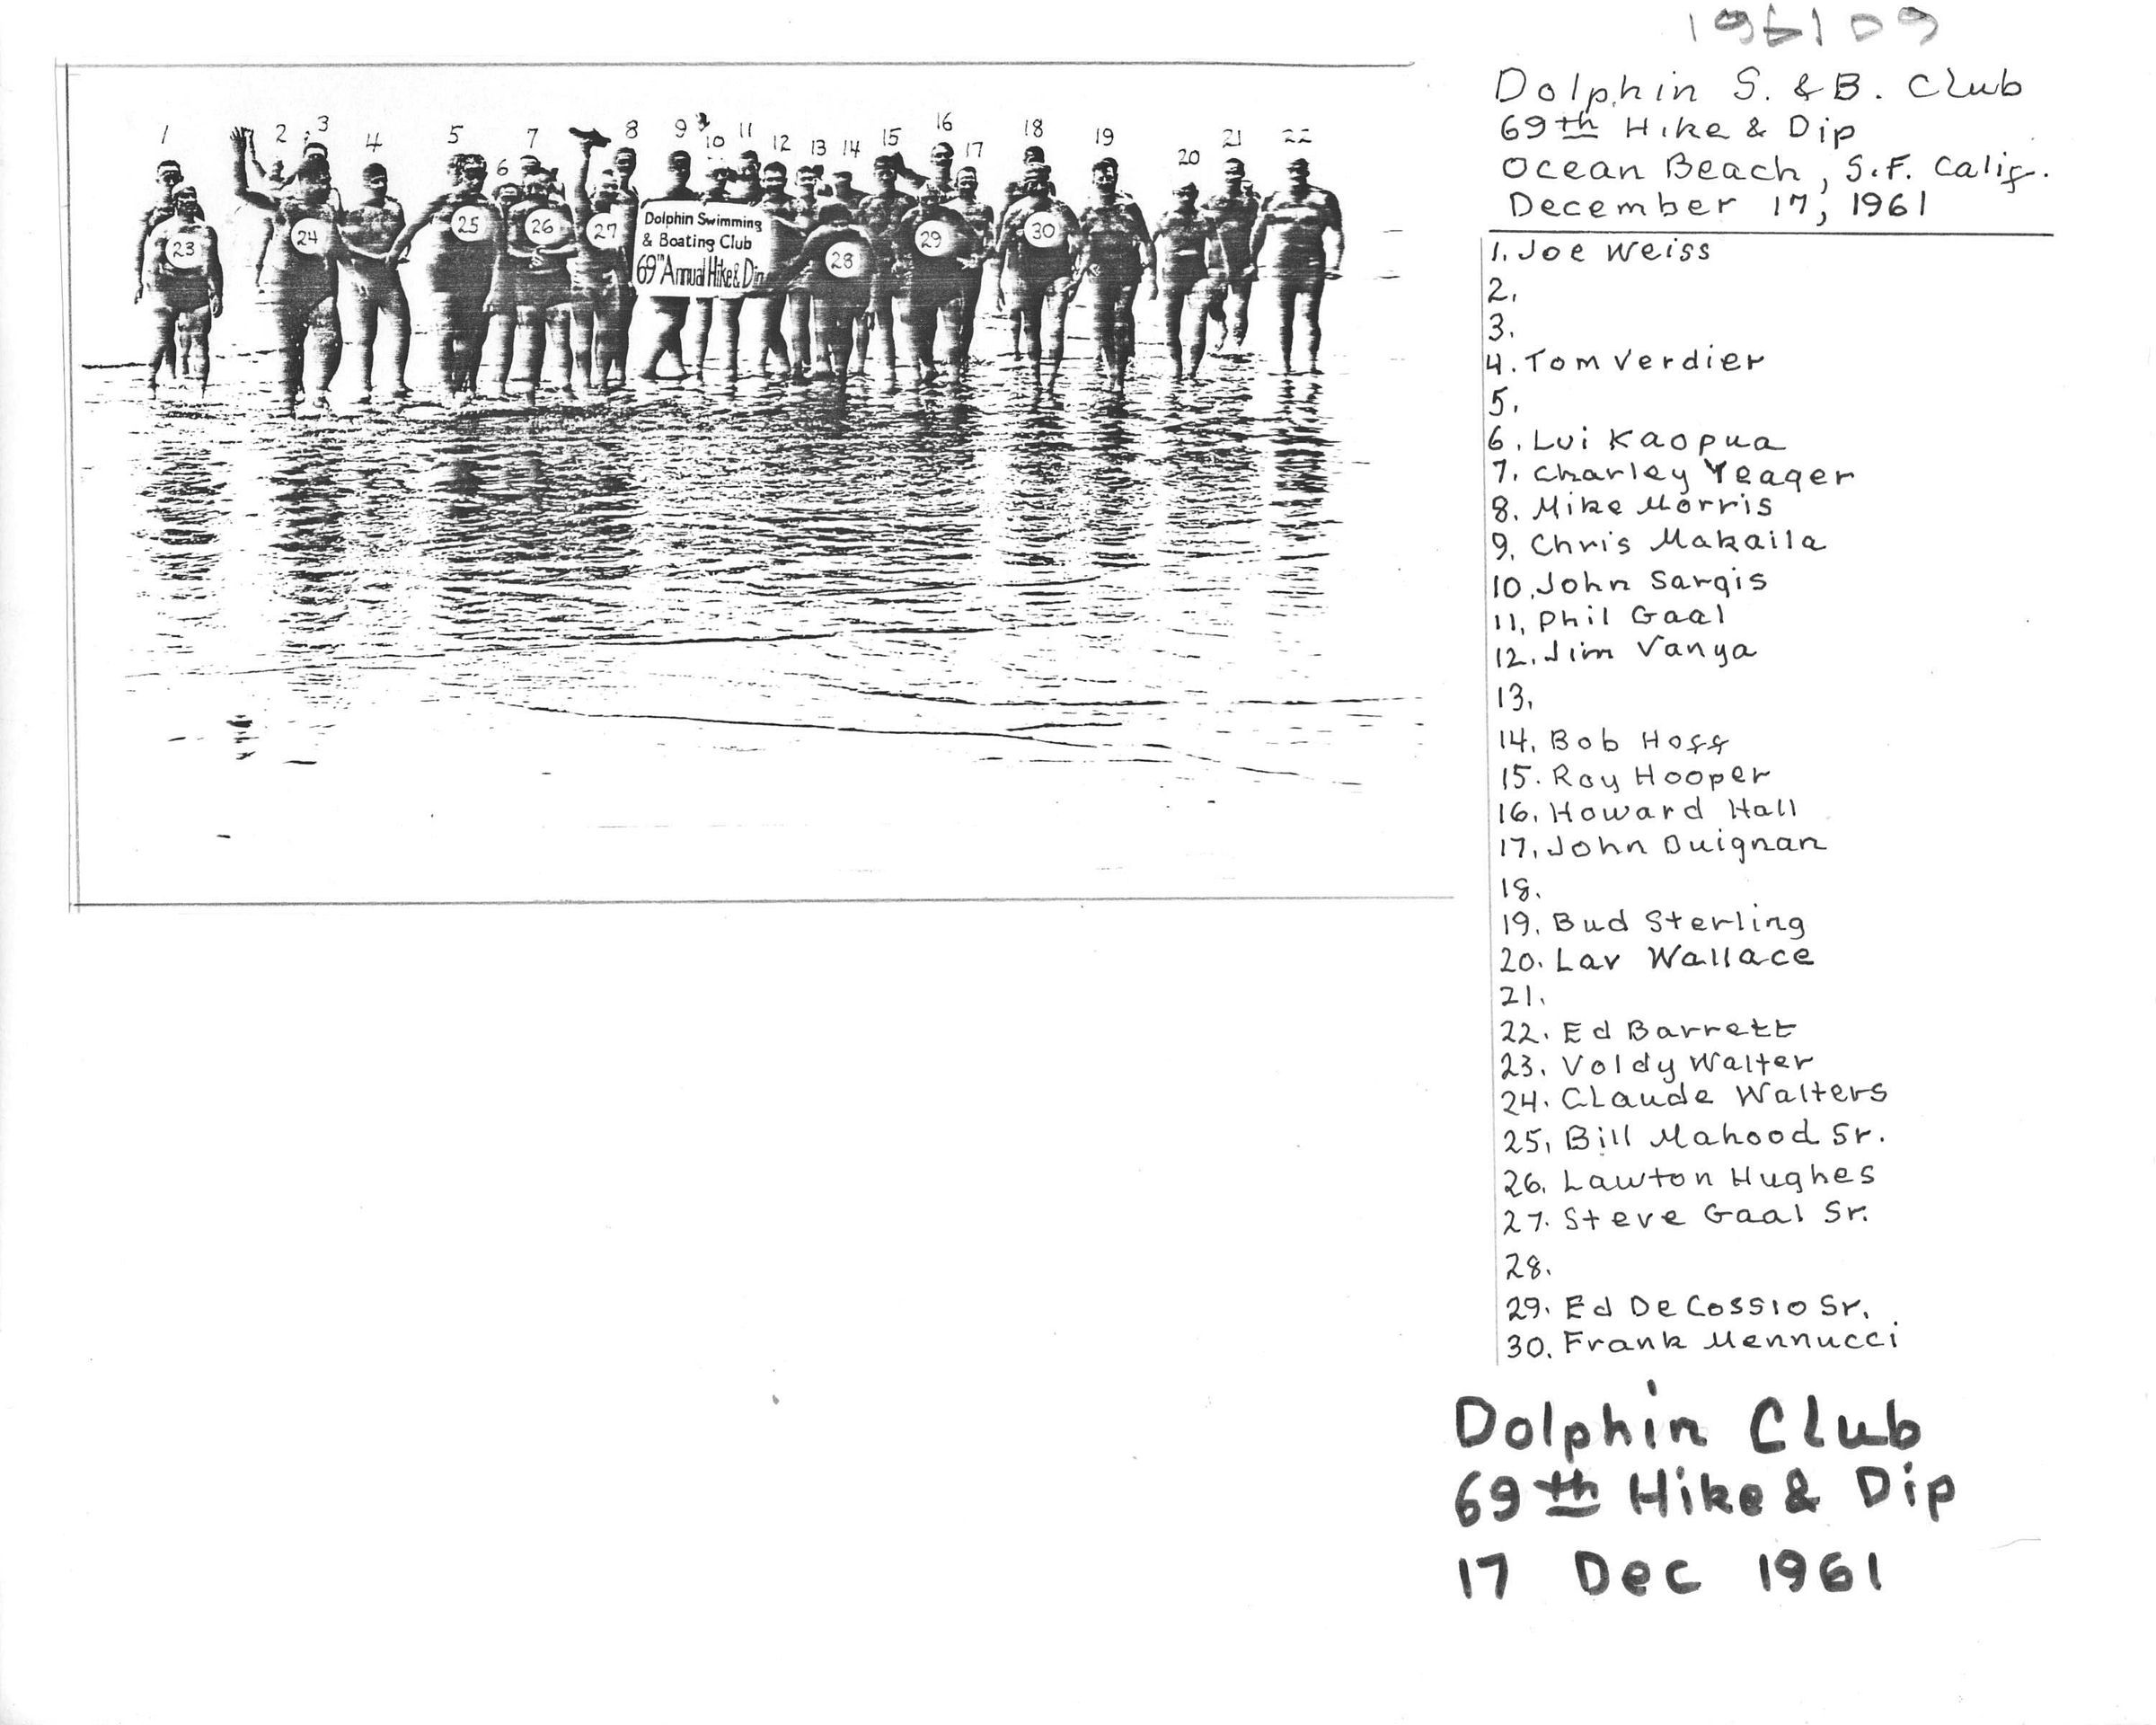 196109
Dolphin S. & B. Club
69th Hike & Dip
Ocean Beach, S.F. Calif.
December 17, 1961
1 2 3 4 5 6 7 8 9 10 11 12 13 14 15 16 17 18 19 20 21 22
23 24 25 26 27 28 29 30
Dolphin Swimming
& Boating Club
69th Annual Hike & Dip
1. Joe Weiss
2.
3.
4. Tom Verdier
5.
6. Lui Kaopua
7. Charley Yeager
8. Mike Morris
9. Chris Makaila
10. John Sargis
11. Phil Gaal
12. Jim Vanya
13.
14. Bob Hoff
15. Roy Hooper
16. Howard Hall
17. John Duignan
18.
19. Bud Sterling
20. Lav Wallace
21.
22. Ed Barrett
23. Voldy Walter
24. Claude Walters
25. Bill Mahood Sr.
26. Lawton Hughes
27. Steve Gaal Sr.
28.
29. Ed DeCossio Sr.
30. Frank Mennucci
Dolphin Club
69th Hike & Dip
17 Dec 1961